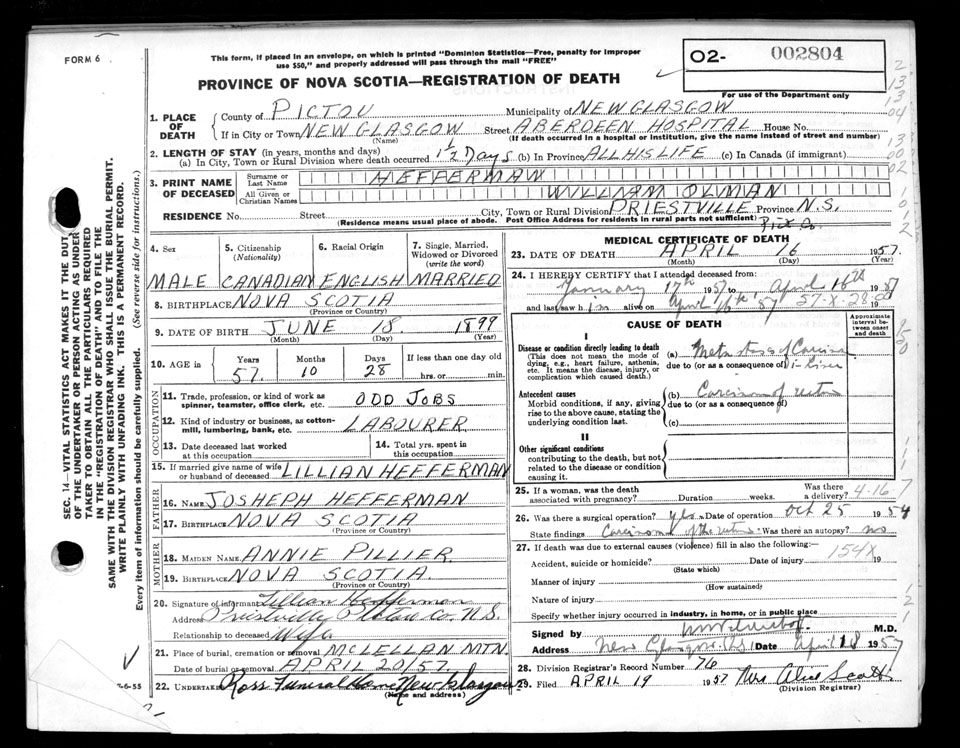 FORM 6
This form, if placed in an envelope, on which is printed "Dominion Statistics—Free, penalty for improper
use $50," and properly addressed will pass through the mail "FREE"
O2- 002804
For use of the Department only
PROVINCE OF NOVA SCOTIA—REGISTRATION OF DEATH
1. PLACE OF DEATH
County of PICTOU Municipality of NEW GLASGOW
If in City or Town NEW GLASGOW Street ABERDEEN HOSPITAL House No.
(Name) (If death occurred in a hospital or institution, give the name instead of street and number)
2. LENGTH OF STAY (in years, months and days)
(a) In City, Town or Rural Division where death occurred 1½ Days (b) In Province ALL HIS LIFE (c) In Canada (if immigrant)
3. PRINT NAME OF DECEASED
Surname or Last Name HEFFERMAN
All Given or Christian Names WILLIAM OLMAN
RESIDENCE No. Street City, Town or Rural Division PRIESTVILLE Province N.S.
(Residence means usual place of abode. Post Office Address for residents in rural parts not sufficient) Pict Co
4. Sex 5. Citizenship (Nationality) 6. Racial Origin 7. Single, Married, Widowed or Divorced (write the word)
MALE CANADIAN ENGLISH MARRIED
8. BIRTHPLACE NOVA SCOTIA
(Province or Country)
9. DATE OF BIRTH JUNE 18. 1899
(Month) (Day) (Year)
10. AGE in Years 57. Months 10 Days 28 If less than one day old hrs. or min.
OCCUPATION
11. Trade, profession, or kind of work as spinner, teamster, office clerk, etc. ODD JOBS
12. Kind of industry or business, as cotton-mill, lumbering, bank, etc. LABOURER.
13. Date deceased last worked at this occupation 14. Total yrs. spent in this occupation
15. If married give name of wife or husband of deceased LILLIAN HEFFERMAN
FATHER
16. NAME JOSHEPH HEFFERMAN
17. BIRTHPLACE NOVA SCOTIA
(Province or Country)
MOTHER
18. MAIDEN NAME ANNIE PILLIER
19. BIRTHPLACE NOVA SCOTIA.
(Province or Country)
20. Signature of informant Lillian Hefferman
Address Priestville Pictou Co. N.S.
Relationship to deceased Wife
21. Place of burial, cremation or removal MCLELLAN MTN.
Date of burial or removal APRIL 20/57.
22. UNDERTAKER Ross Funeral Home New Glasgow
(Name and address)
MEDICAL CERTIFICATE OF DEATH
23. DATE OF DEATH APRIL 16 1957.
(Month) (Day) (Year)
24. I HEREBY CERTIFY that I attended deceased from
January 17th 1957 to April 16th 1957
and last saw him alive on April 16th 57 57-X-28-0
CAUSE OF DEATH
Approximate interval between onset and death
I
Disease or condition directly leading to death
(This does not mean the mode of dying, e.g., heart failure, asthenia, etc. It means the disease, injury, or complication which caused death.)
(a) Metastases of
due to (or as a consequence of) Liver
Antecedent causes
Morbid conditions, if any, giving rise to the above cause, stating the underlying condition last.
(b) Carcinoma of
due to (or as a consequence of)
(c)
II
Other significant conditions
contributing to the death, but not related to the disease or condition causing it.
25. If a woman, was the death associated with pregnancy? Duration weeks. Was there a delivery? 4-16
26. Was there a surgical operation? yes Date of operation Oct 25 1954
State findings Carcinoma of the Was there an autopsy? no
27. If death was due to external causes (violence) fill in also the following:—
Accident, suicide or homicide? Date of injury 19 154X
(State which)
Manner of injury
(How sustained)
Nature of injury
Specify whether injury occurred in industry, in home, or in public place
Signed by M.D.
Address New Glasgow Date April 18 1957
28. Division Registrar's Record Number 76
29. Filed APRIL 19 1957 Mrs Alice Scott
(Division Registrar)
-6-55
SEC. 14—VITAL STATISTICS ACT MAKES IT THE DUTY
OF THE UNDERTAKER OR PERSON ACTING AS UNDER-
TAKER TO OBTAIN ALL THE PARTICULARS REQUIRED
IN THE "REGISTRATION OF DEATH" AND TO FILE THE
SAME WITH THE DIVISION REGISTRAR WHO SHALL ISSUE THE BURIAL PERMIT.
WRITE PLAINLY WITH UNFADING INK. THIS IS A PERMANENT RECORD.
Every item of information should be carefully supplied. (See reverse side for instructions.)